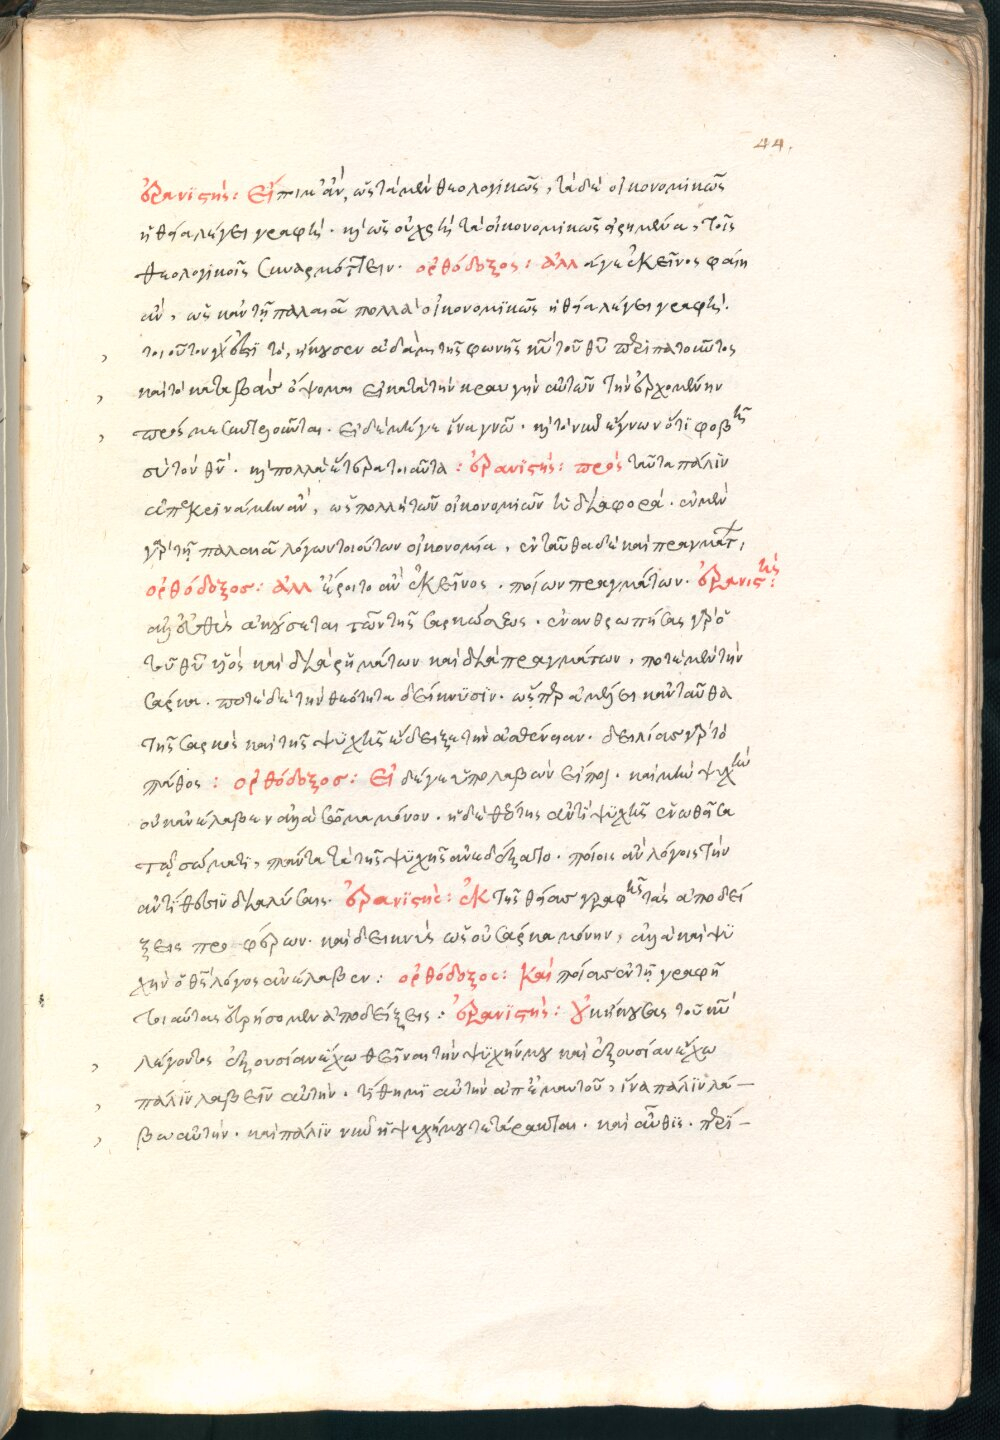 44.
ἐρανϊστής: Εἴποιμ' ἄν, ὡς τὰ μὲν θεολογϊκῶς, τὰ δὲ οἰκονομϊκῶς
ἡ θεία λέγει γραφή· κὶ ὡς οὐ χρὴ τὰ οἰκονομϊκῶς εἰρημένα, τοῖς
θεολογϊκοῖς συναρμόττειν· ὀρθόδοξος: ἀλλ' ἄγε ἐκεῖνος φαίη
ἂν, ὡς κἂν τῇ παλαιᾷ πολλὰ οἰκονομϊκῶς ἡ θεία λέγει γραφή·
τοιοῦτον γάρ ἐστϊ τὸ, ἤκουσεν ἀδὰμ τῆς φωνῆς κυ τοῦ θυ περιπατοῦντος
καὶ τὸ καταβὰς ὄψομαι εἰ κατὰ τὴν κραυγὴν αὐτῶν τὴν ἐρχομένην
πρός με συντελοῦνται· εἰ δὲ μή γε ἵνα γνῶ· κὶ τὸ νῦν ἔγνων ὅτϊ φοβῇ
σὺ τὸν θν· κὶ πολλὰ ἕτερα τοιαῦτα: ἐρανϊστής: πρὸς ταῦτα πάλϊν
ἀπεκρϊνάμην ἂν, ὡς πολλὴ τῶν οἰκονομιῶν ἡ διαφορά· ἐν μὲν
γὰρ τῇ παλαιᾷ λόγων τοιούτων οἰκονομία, ἐνταῦθα δὲ καὶ πραγμάτ,
ὀρθόδοξος: ἀλλ' ἔροιτο ἂν ἐκεῖνος· ποίων πραγμάτων· ἐρανιστής:
ἀλλ' εὐθὺς ἀκούσεται τῶν τῆς σαρκώσεως· ἐνανθρωπήσας γὰρ ὁ
τοῦ θυ υἱὸς καὶ διὰ ῥημάτων καὶ διὰ πραγμάτων, ποτὲ μὲν τὴν
σάρκα· ποτὲ δὲ τὴν θεότητα δείκνϋσϊν· ὥσπερ ἀμέλει κἀνταῦθα
τῆς σαρκὸς καὶ τῆς ψϋχῆς ἔδειξε τὴν ἀσθένειαν· δειλίας γὰρ τὸ
πάθος: ὀρθόδοξος: Εἰ δέ γε ὑπολαβὼν εἴποι· καὶ μὴν ψυχὴν
οὐκ ἀνέλαβεν ἀλλὰ σῶμα μόνον· ἡ δὲ θεότης ἀντὶ ψϋχῆς ἑνωθεῖσα
τῷ σώματϊ, πάντα τὰ τῆς ψϋχῆς ἀνεδέξατο· ποίοις ἂν λόγοις τὴν
ἀντίθεσϊν διαλύσαις· ἐρανϊστής: ἐκ τῆς θείας γραφῆς τὰς ἀποδεί
ξεις προφέρων· καὶ δεικνὺς ὡς οὐ σάρκα μόνην, ἀλλὰ καὶ ψϋ
χὴν ὁ θς λόγος ἀνέλαβεν: ὀρθόδοξος: Καὶ ποίας ἐν τῇ γραφῇ
τοιαύτας εὑρήσομεν ἀποδείξεις: ἐρανϊστής: Οὐκ ἤκουσας τοῦ κυ
λέγοντος ἐξουσίαν ἔχω θεῖναι τὴν ψϋχήν μου καὶ ἐξουσίαν ἔχω
πάλϊν λαβεῖν αὐτήν· τϊθημϊ αὐτὴν ἀπ' ἐμαυτοῦ, ἵνα πάλϊν λά—
βω αὐτήν· καὶ πάλϊν νῦν ἡ ψυχή μου τετάρακται· καὶ αὖθϊς· περί—